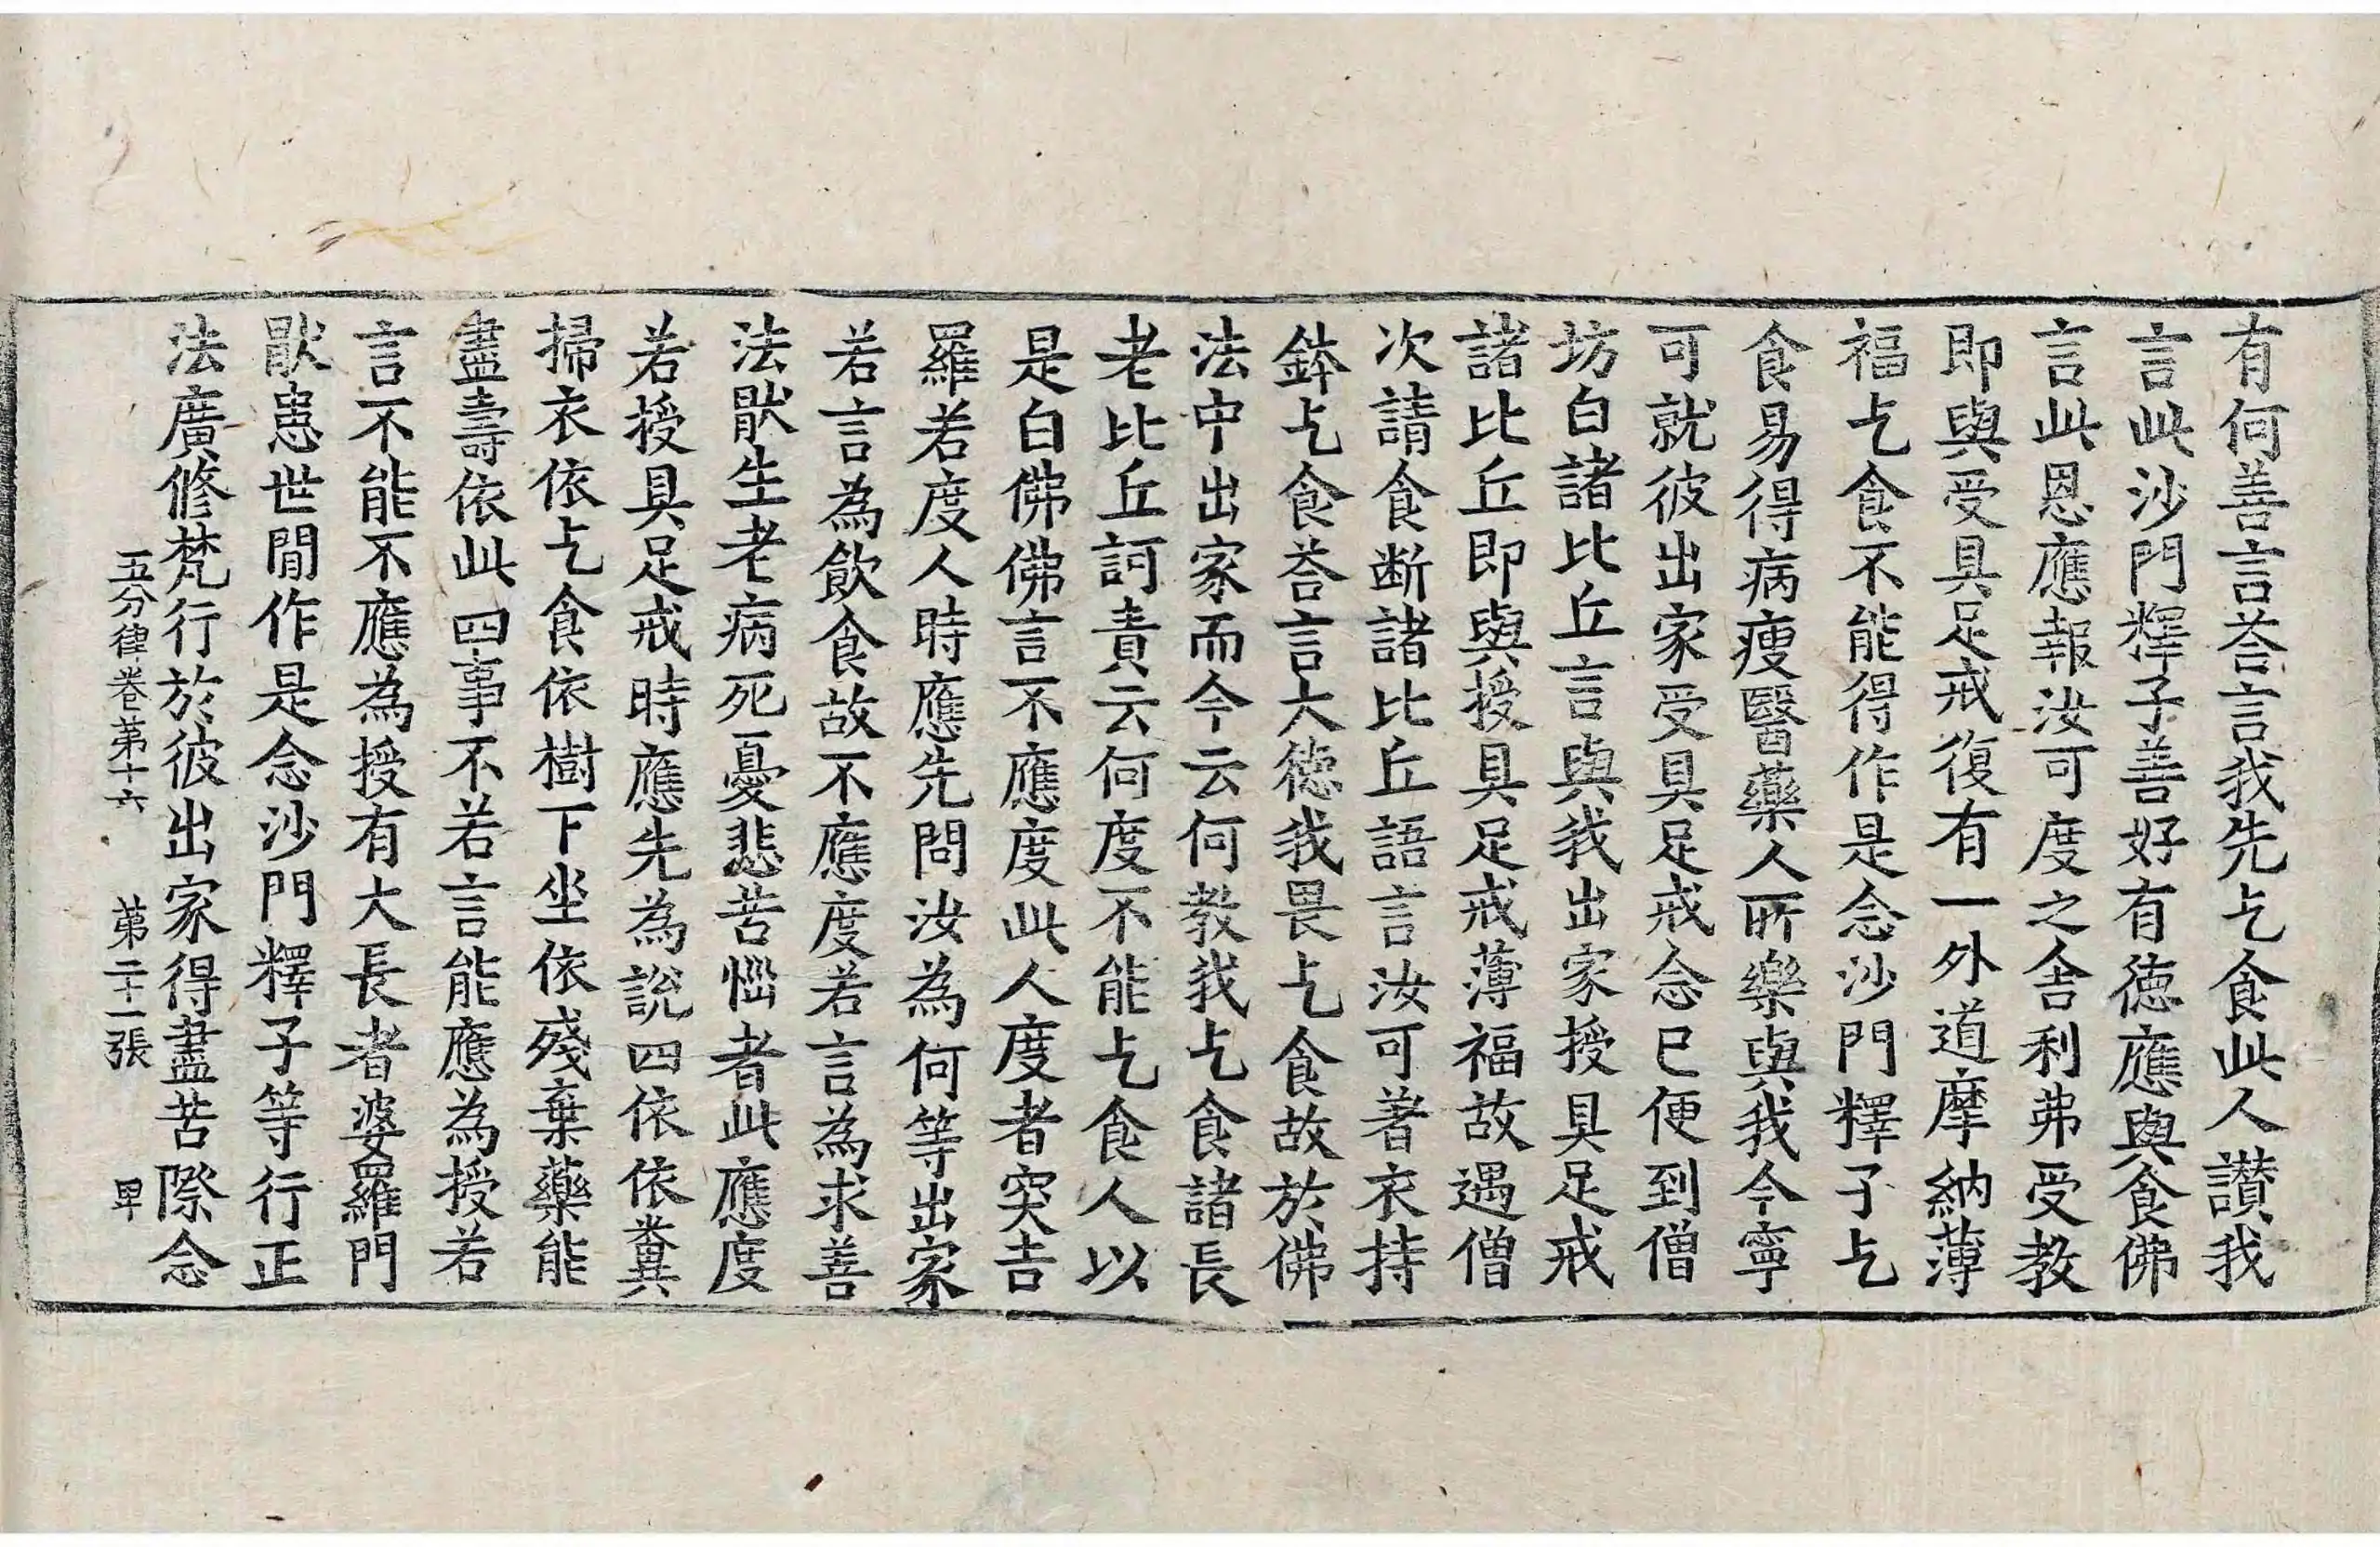 有何善言荅言我先乞食此人讃我
言此沙門釋子善好有德應與食佛
言此恩應報汝可度之舍利弗受教
即與受具足戒復有一外道摩納薄
福乞食不能得作是念沙門釋子乞
食易得病瘦醫藥人所樂與我今寧
可就彼出家受具足戒念已便到僧
坊白諸比丘言與我出家授具足戒
諸比丘即與授具足戒薄福故遇僧
次請食断諸比丘語言汝可著衣持
鉢乞食荅言大德我畏乞食故於佛
法中出家而今云何教我乞食諸長
老比丘訶責云何度不能乞食人以
是白佛佛言不應度此人度者突吉
羅若度人時應先問汝為何等出家
若言為飲食故不應度若言為求善
法猒生老病死憂悲苦惱者此應度
若授具足戒時應先為說四依依糞
掃衣依乞食依樹下坐依殘棄藥能
盡壽依此四事不若言能應為授若
言不能不應為授有大長者婆羅門
猒患世間作是念沙門釋子等行正
法廣修梵行於彼出家得盡苦際念
五分律卷第十六 第二十一張 卑